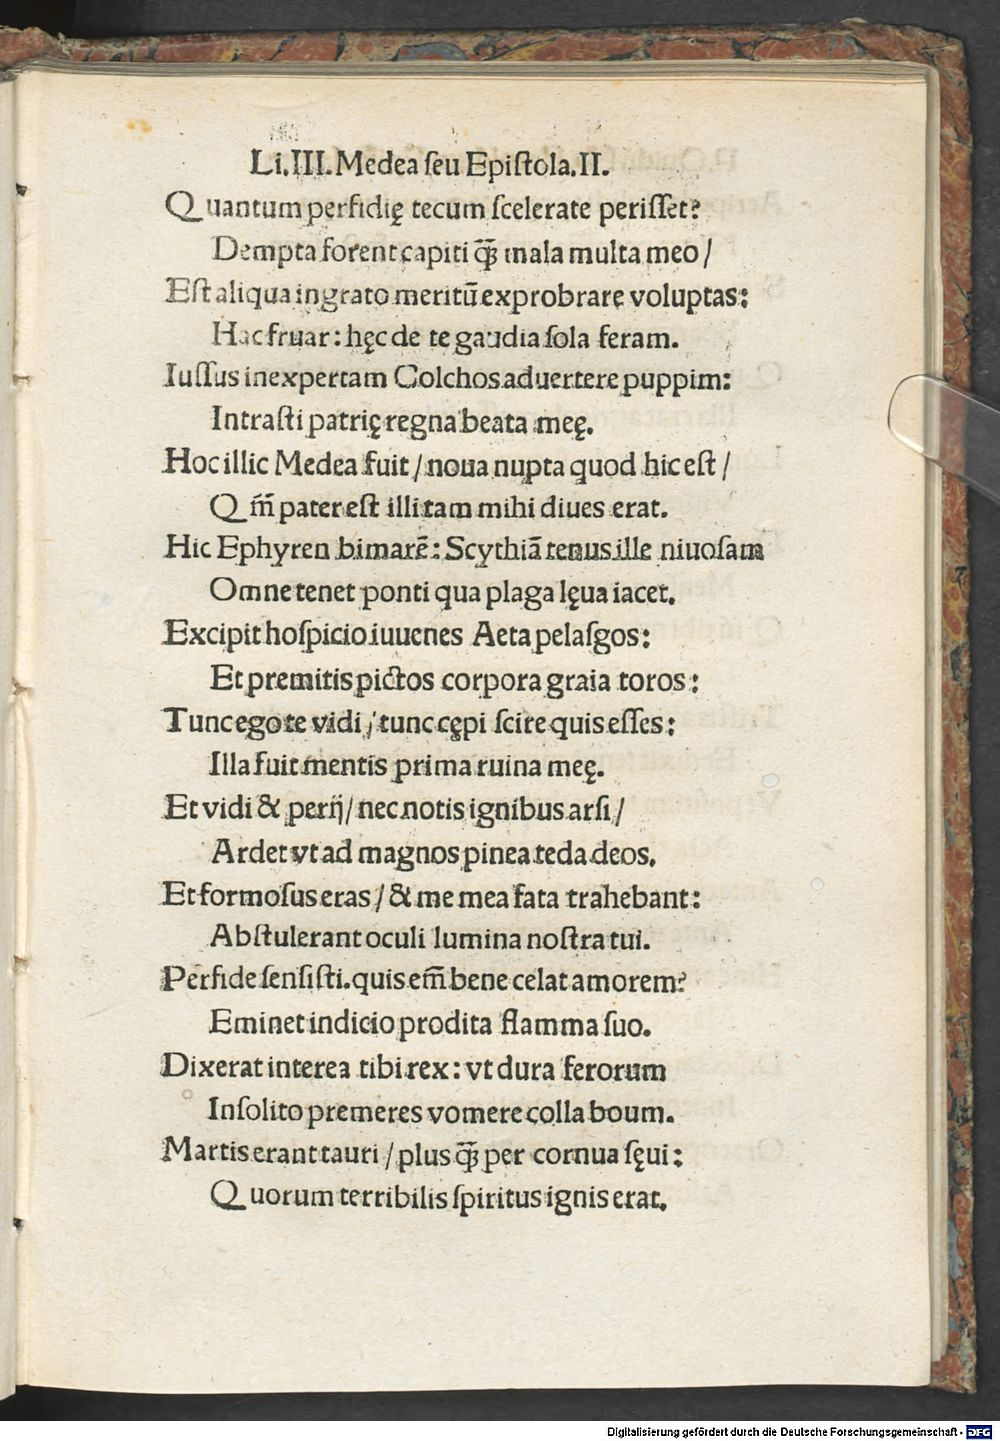 Li.III.Medea ſeu Epiſtola.II.
Quantum perfidię tecum ſcelerate periſſet?
Dempta forent capiti q̃ mala multa meo /
Eſt aliqua ingrato meritū exprobrare voluptas:
Hac fruar: hęc de te gaudia ſola feram.
Iuſſus inexpertam Colchos aduertere puppim:
Intraſti patrię regna beata meę.
Hoc illic Medea fuit / noua nupta quod hic eſt /
Q m̃ pater eſt illi tam mihi diues erat.
Hic Ephyren bimarē: Scythiā tenus ille niuoſam
Omne tenet ponti qua plaga lęua iacet.
Excipit hoſpicio iuuenes Aeta pelaſgos:
Et premitis pictos corpora graia toros:
Tunc ego te vidi / tunc cępi ſcire quis eſſes:
Illa fuit mentis prima ruina meę.
Et vidi & perij / nec notis ignibus arſi /
Ardet vt ad magnos pinea teda deos.
Et formoſus eras / & me mea fata trahebant:
Abſtulerant oculi lumina noſtra tui.
Perfide ſenſiſti. quis em̃ bene celat amorem?
Eminet indicio prodita flamma ſuo.
Dixerat interea tibi rex: vt dura ferorum
Inſolito premeres vomere colla boum.
Martis erant tauri / plus q̃ per cornua ſęui:
Quorum terribilis ſpiritus ignis erat.
Digitalisierung gefördert durch die Deutsche Forschungsgemeinschaft - DFG